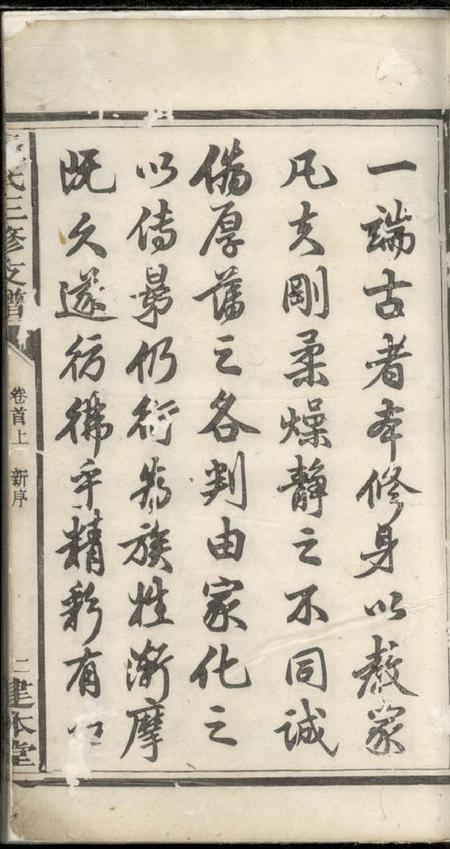 一端古者本修身以教家
凡夫剛柔燥靜之不同誠
偽厚薄之各判由家化之
以傳仍衍為族性漸摩
既久遂彷彿乎精彩有
氏三修支譜
卷首上 新序
二
建本堂